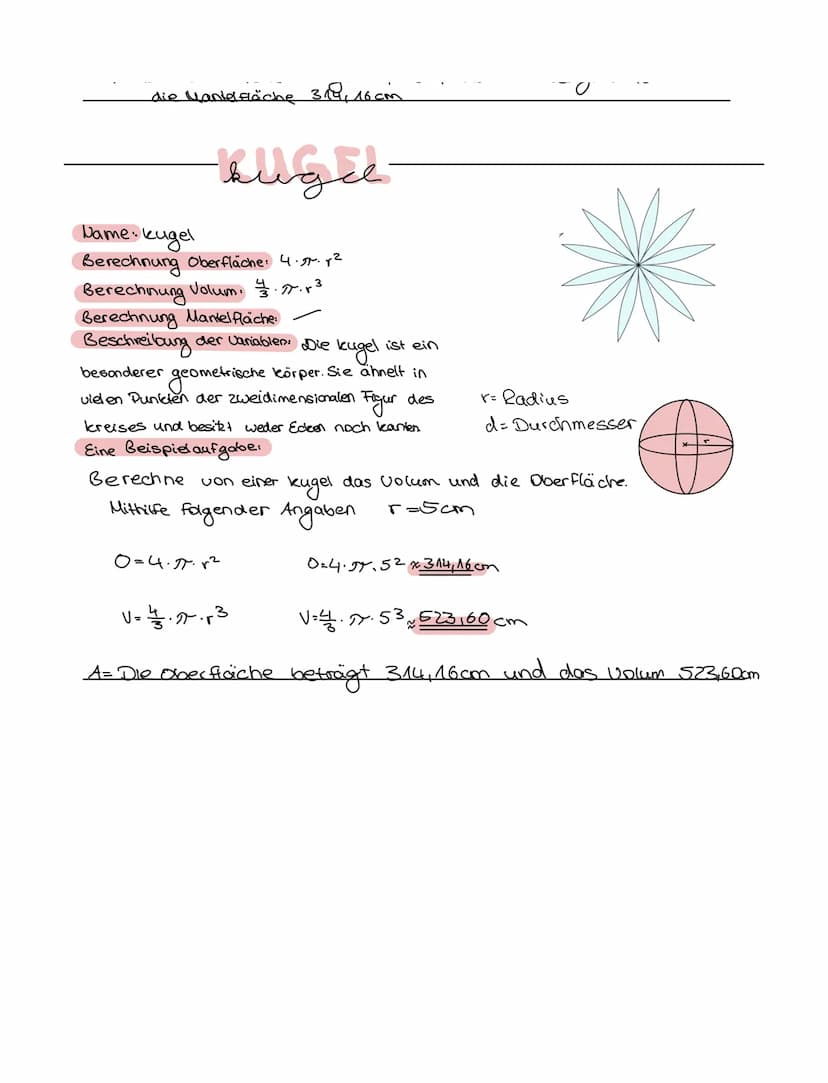 die Mantelfläche 314,16cm
KUGEL
kugel
Name: Kugel
Berechnung Oberfläche: 4·π·r²
Berechnung Volum: 4/3·π·r³
Berechnung Mantelfläche: —
Beschreibung der Variablen: Die Kugel ist ein
besonderer geometrische Körper. Sie ähnelt in
vielen Punkten der zweidimensionalen Figur des
kreises und besitzt weder Ecken noch kanten
r= Radius
d= Durchmesser
r
Eine Beispielaufgabe:
Berechne von einer Kugel das Volum und die Oberfläche.
Mithilfe folgender Angaben r=5cm
O=4·π·r² O=4·π·5² ≈ 314,16cm
V=4/3·π·r³ V=4/3·π·5³ ≈ 523,60 cm
A= Die Oberfläche beträgt 314,16cm und das Volum 523,60cm